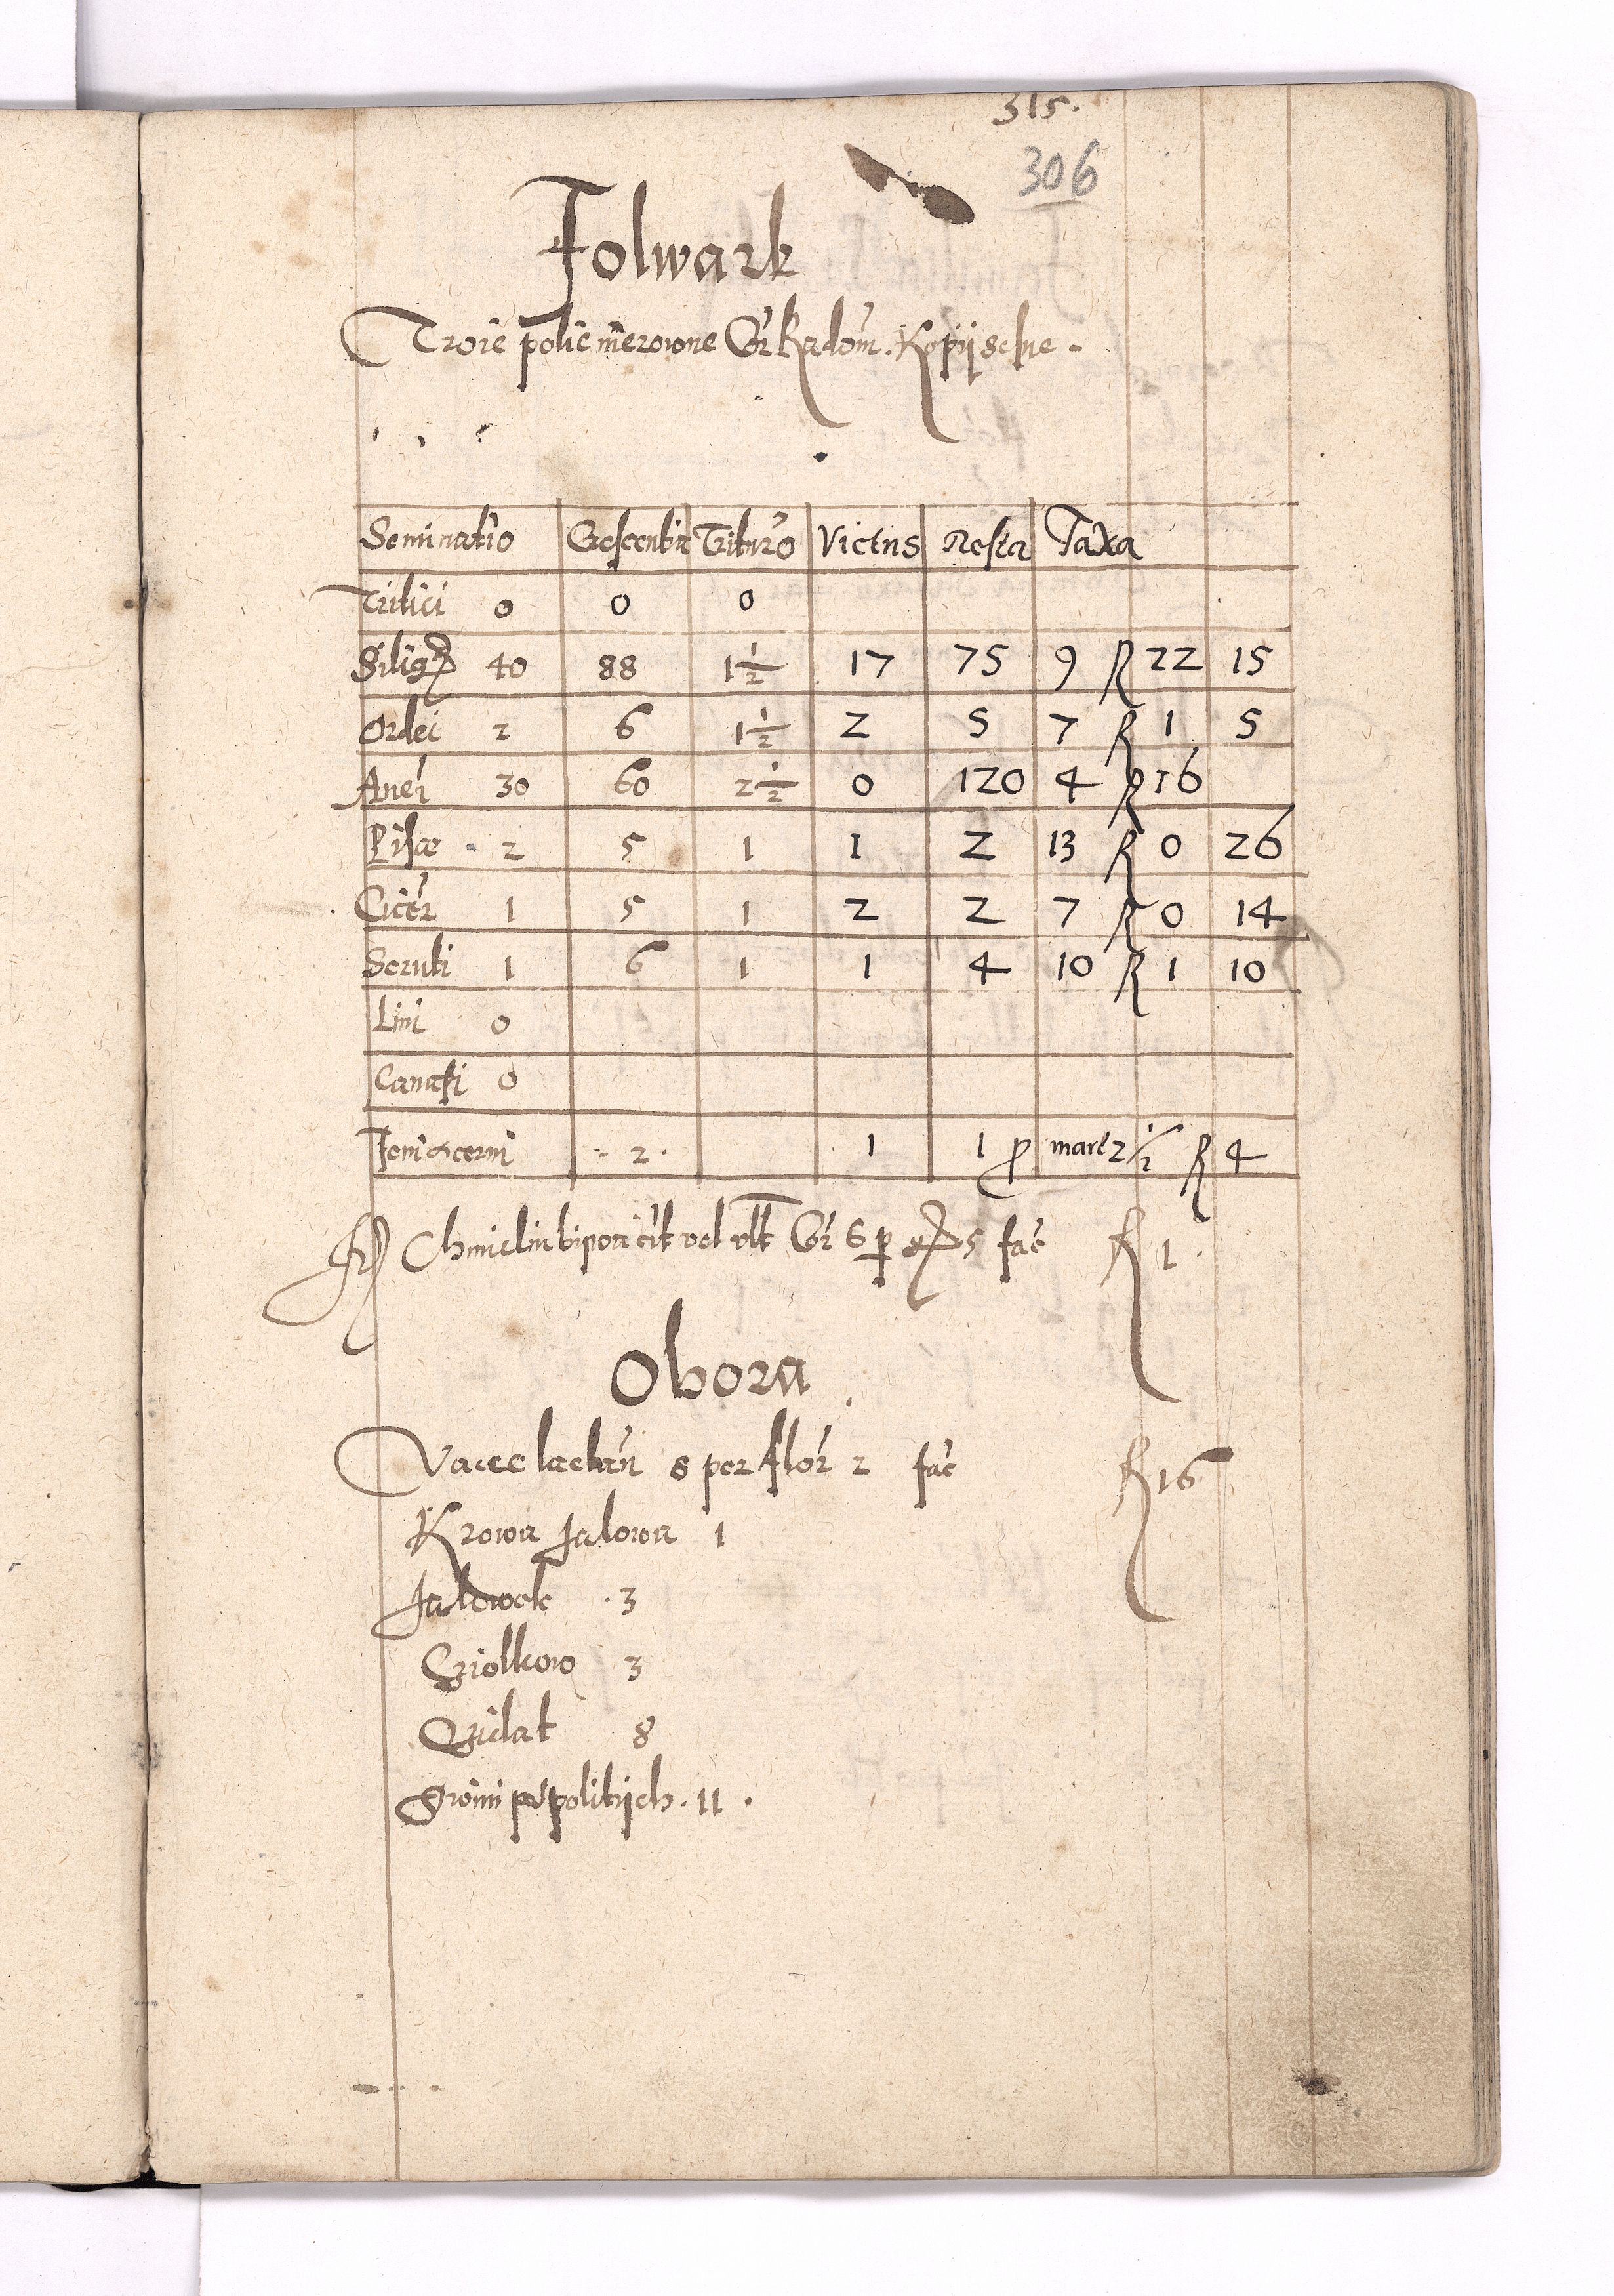 315.
306
Folwark
Troie polie mierzone Cor Radom. Kopy sehne
Seminatio Crescentia Trituro Victus Resta Taxa
Tritici 0 0 0
Silig 40 88 1 1/2 17 75 9 R 22 15
Ordei 2 6 1 1/2 2 5 7 R 1 5
Aven 30 60 2 1/2 0 120 4 R 16
Pisae 2 5 1 1 2 13 R 0 26
Cicer 1 5 1 2 2 7 R 0 14
Seruti 1 6 1 1 4 10 R 1 10
Lini 0
Canapi 0
Feni acerni 2. 1 1 p marc 2 1/2 R 4
Chmieliu bipon cit vel ult Cor 6 p 5 fac R 1.
Obora
Vacce lactan 8 per flor 2 fac R 16
Krowa Jalowa 1
Jalowek .3
Cziolkow 3
Czielat 8
Swini pospolitych. 11.